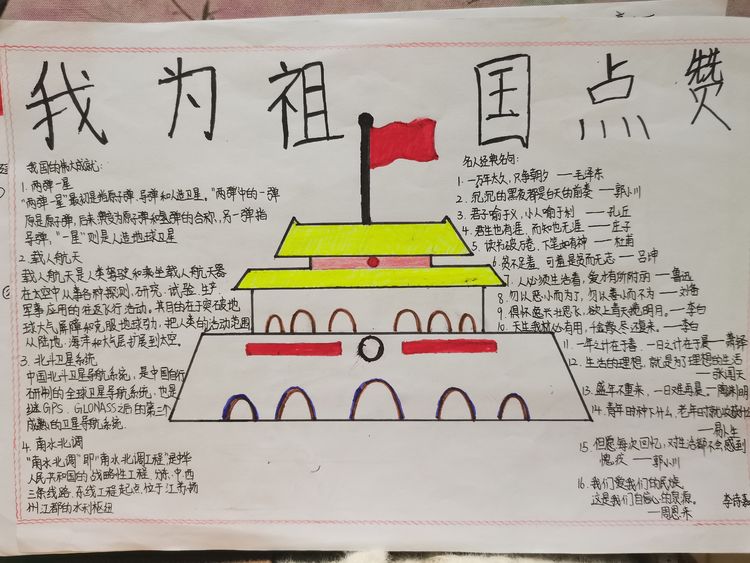 我为祖国点赞
我国的伟大成就：
1. 两弹一星
“两弹一星”最初是指原子弹、导弹和人造卫星。“两弹中的一弹
原是原子弹，后来演变为原子弹和氢弹的合称，另一弹指
导弹，“一星”则是人造地球卫星
2. 载人航天
载人航天是人类驾驶和乘坐载人航天器
在太空中从事各种探测、研究、试验、生产、
军事应用的往返飞行活动。其目的在于突破地
球大气屏障和克服地球引力，把人类的活动范围
从陆地、海洋和大气层扩展到太空。
3. 北斗卫星系统
中国北斗卫星导航系统，是中国自行
研制的全球卫星导航系统，也是
继GPS、GLONASS之后的第三个
成熟的卫星导航系统。
4. 南水北调
“南水北调”即“南水北调工程”是中华
人民共和国的战略性工程，分东、中、西
三条线路，东线工程起点位于江苏扬
州江都的水利枢纽
名人经典名句：
1. 一万年太久，只争朝夕 ——毛泽东
2. 沉沉的黑夜都是白天的前奏 ——郭小川
3. 君子喻于义，小人喻于利 ——孔丘
4. 君生也有涯，而知也无涯 ——庄子
5. 读书破万卷，下笔如有神 ——杜甫
6. 贫不足羞，可羞是贫而无志 ——吕坤
7. 人必须生活着，爱才有所附丽 ——鲁迅
8. 勿以恶小而为之，勿以善小而不为 ——刘备
9. 俱怀逸兴壮思飞，欲上青天揽明月。——李白
10. 天生我材必有用，千金散尽还复来。——李白
11. 一年之计在于春，一日之计在于晨 ——萧绎
12. 生活的理想，就是为了理想的生活
——张闻天
13. 盛年不重来，一日难再晨。——陶渊明
14. 青年时种下什么，老年时就收获什么
——易卜生
15. 但愿每次回忆，对生活都不会感到
愧疚 ——郭小川
16. 我们爱我们的民族，
这是我们自信心的泉源。
——周恩来
李诗